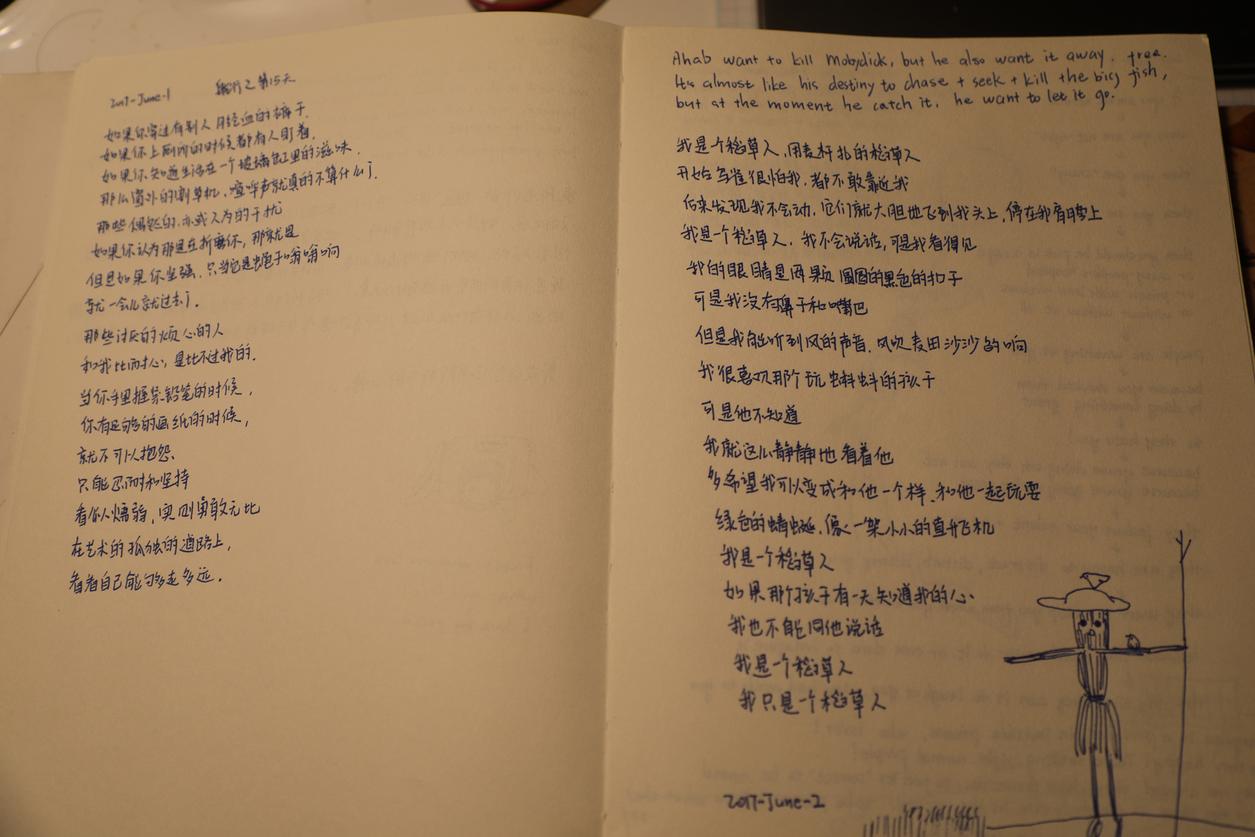 2017-June-1 航行之第15天
如果你穿过有别人月经血的裤子
如果你上厕所的时候都有人盯着
如果你知道生活在一个玻璃缸里的滋味
那么窗外的割草机,喧哗声就真的不算什么了.
那些偶然的,亦或人为的干扰
如果你认为那是在折磨你,那就是
但是如果你坚强,只当它是蝇子嗡嗡响
就一会儿就过去了.
那些讨厌的烦心的人
和我比耐心,是比不过我的.
当你手里握紧铅笔的时候,
你有足够的画纸的时候,
就不可以抱怨、
只能忍耐和坚持
看似懦弱,实则勇敢无比
在艺术的孤独的道路上,
看看自己能够走多远.
Ahab want to kill Mobydick, but he also want it away. free.
It's almost like his destiny to chase + seek + kill the big fish,
but at the moment he catch it, he want to let it go.
我是个稻草人,用麦杆扎的稻草人
开始鸟雀很怕我,都不敢靠近我
后来发现我不会动,它们就大胆地飞到我头上,停在我肩膀上
我是个稻草人,我不会说话,可是我看得见
我的眼睛是两颗圆圆的黑色的扣子
可是我没有鼻子和嘴巴
但是我能听到风的声音,风吹麦田沙沙的响
我很喜欢那个玩蝌蚪的孩子
可是他不知道
我就这么静静地看着他
多希望我可以变成和他一个样,和他一起玩耍
绿色的蜻蜓,像一架小小的直升飞机
我是一个稻草人
如果那个孩子有一天知道我的心
我也不能同他说话
我是一个稻草人
我只是一个稻草人
2017-June-2